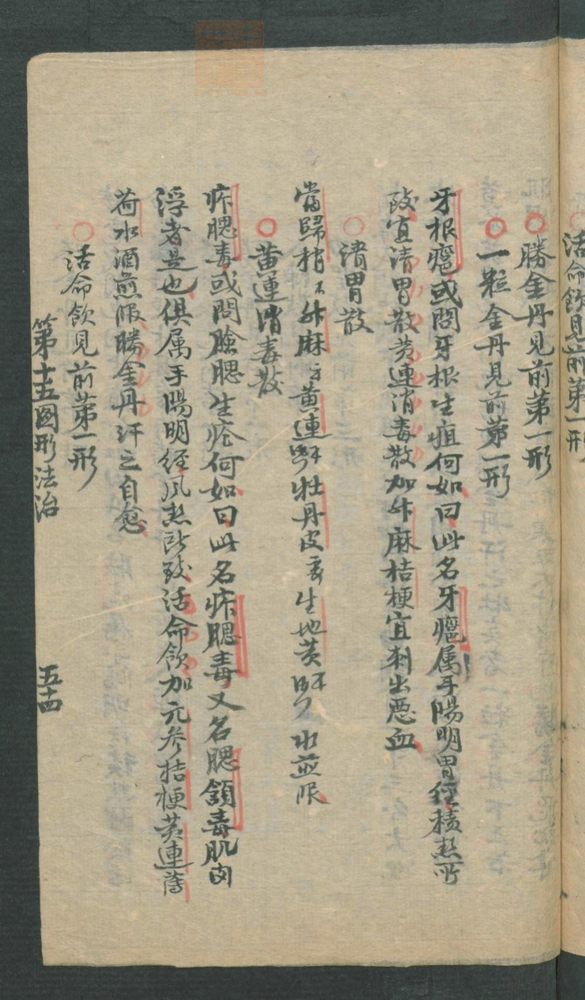 活命飲見前第一形
○勝金丹見前第一形
○一粒金丹見前第一形
牙根癰或問牙根生疽何如曰此名牙癰属手陽明胃經積熱所
致宜清胃散黄連消毒散加升麻桔梗宜刺出悪血
○清胃散
當歸梢 升麻 黄連 牡丹皮 生地黄 水煎服
○黄連消毒散
痄腮毒或問臉腮生瘡何如曰此名痄腮毒又名腮頷毒肌肉
浮者是也俱属手陽明經風热所致活命飲加元参桔梗黄連薄
荷水酒煎服勝金丹汗之自愈
○活命飲見前第一形
第十五圖形法治
五十四